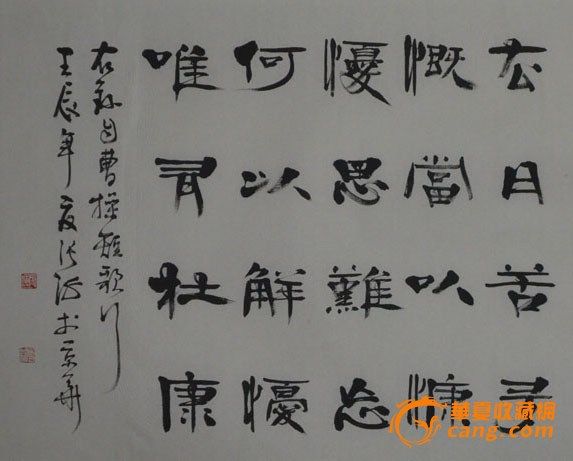 去日苦多
慨當以慷
懮思難忘
何以解懮
唯有杜康
右錄自曹操短歌行
壬辰年夏於京華
華夏收藏網
cang.com